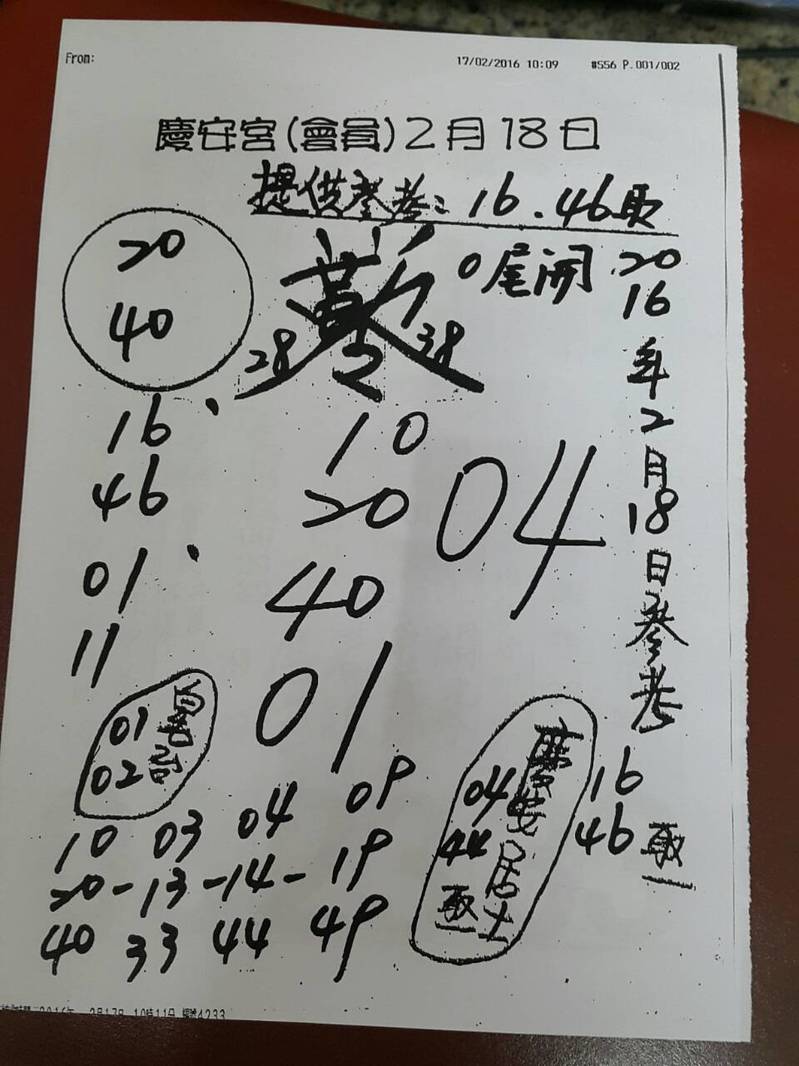 From:
17/02/2016 10:09 #556 P.001/002
慶安宮(會員)2月18日
提供參考: 16.46取
20
40
28 38
0尾開
2016年2月18日參考
16
46
取
16
46
01
11
10
20
40
01
04
01
02
慶安居士
04
44
取
10 03 04 09
20-13-14-19
40 33 44 49